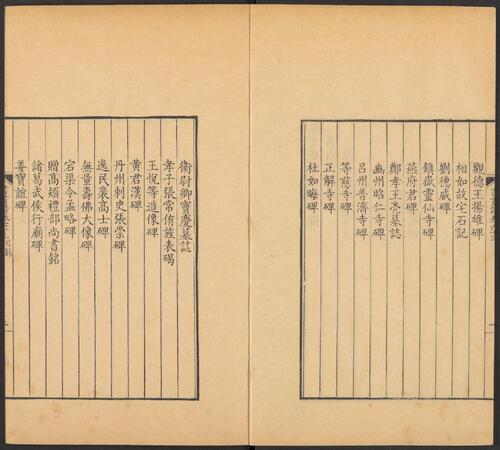 觀德王楊雄碑
相如故宅石記
劉德威碑
鎮嶽靈仙寺碑
燕府君碑
鄭孝王亮墓誌
豳州昭仁寺碑
呂州普濟寺碑
等慈寺碑
正解寺碑
杜如晦碑
衛尉卿竇慶墓誌
孝子張常侑旌表碣
王悅等造像碑
黄君漢碑
丹州刺史張崇碑
逸民裴高士碑
無量壽佛大像碑
宕渠令孟略碑
贈高熲禮部尚書銘
諸葛武侯行廟碑
姜寶誼碑